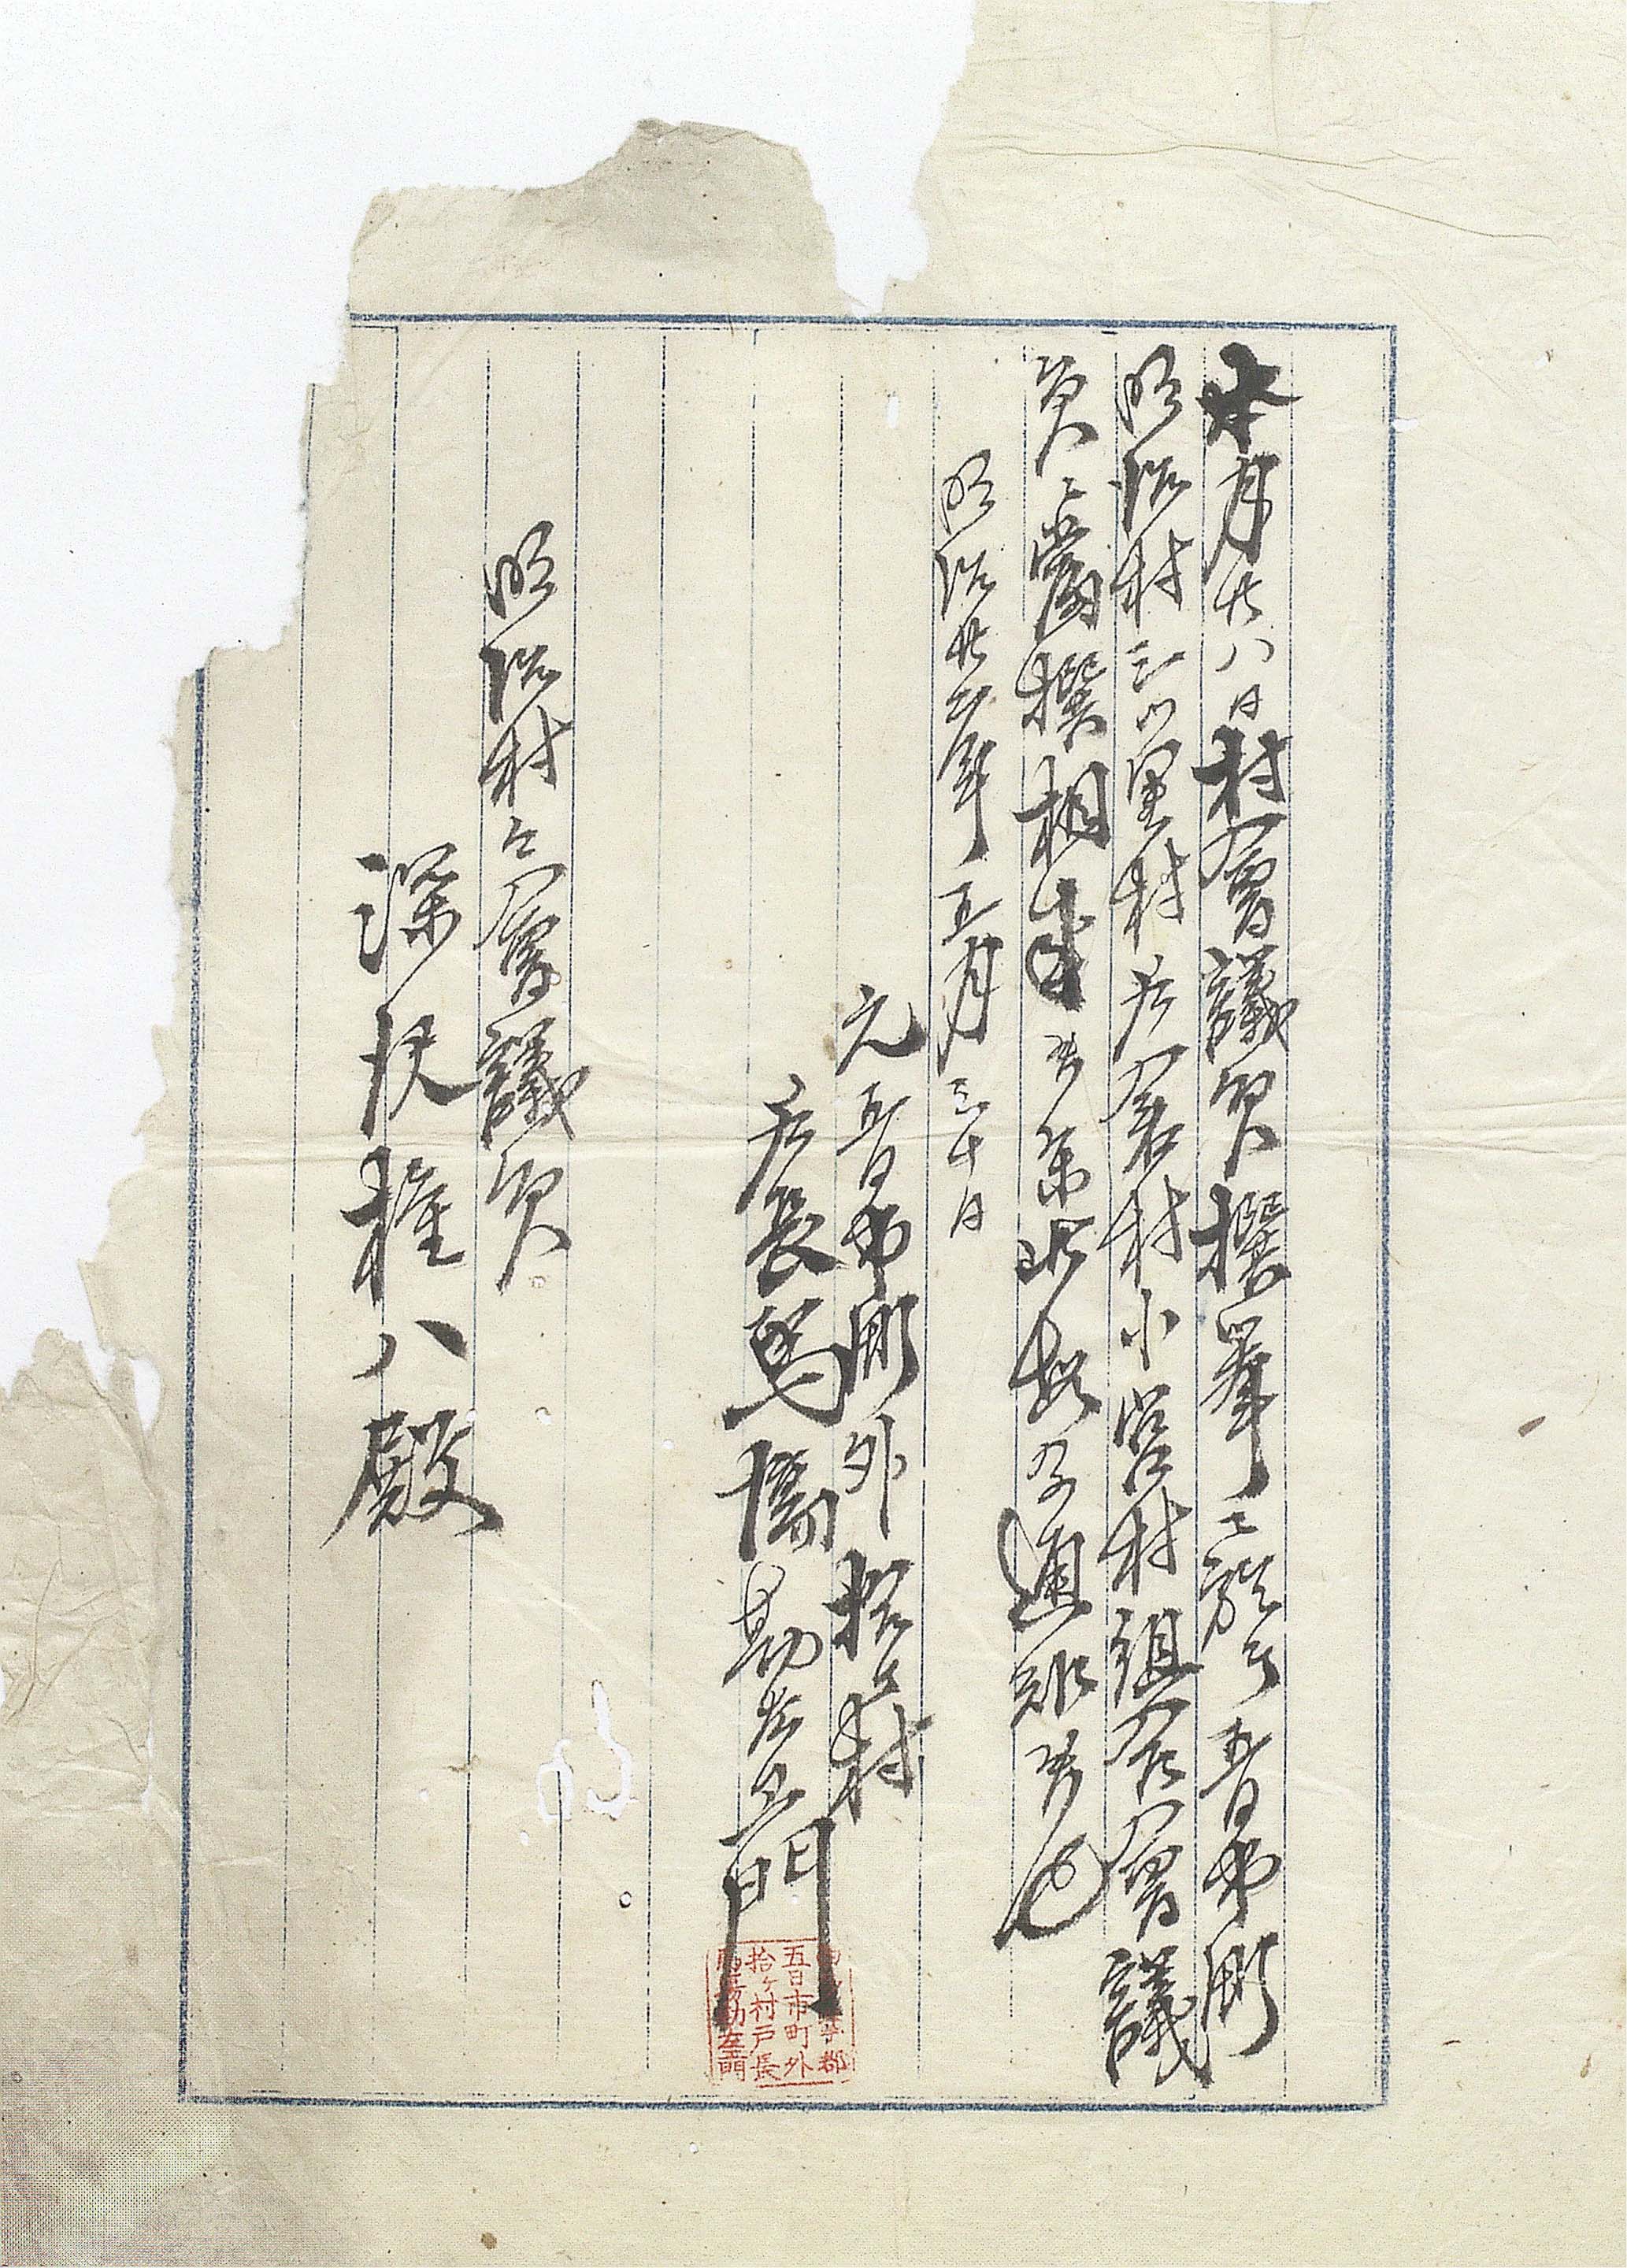 本月廿八日村會議員撰挙ニ於テ五日市町
明治村三ツ里村戸倉村小宮村組合會議
員ニ當撰相成候条此段及通知候也
明治廿二年五月三十日
元五日市町外拾ヶ村
戸長馬場勘左衛門
五日市町外
拾ヶ村戸長
馬場勘左衛門
明治村々會議員
深沢権八殿